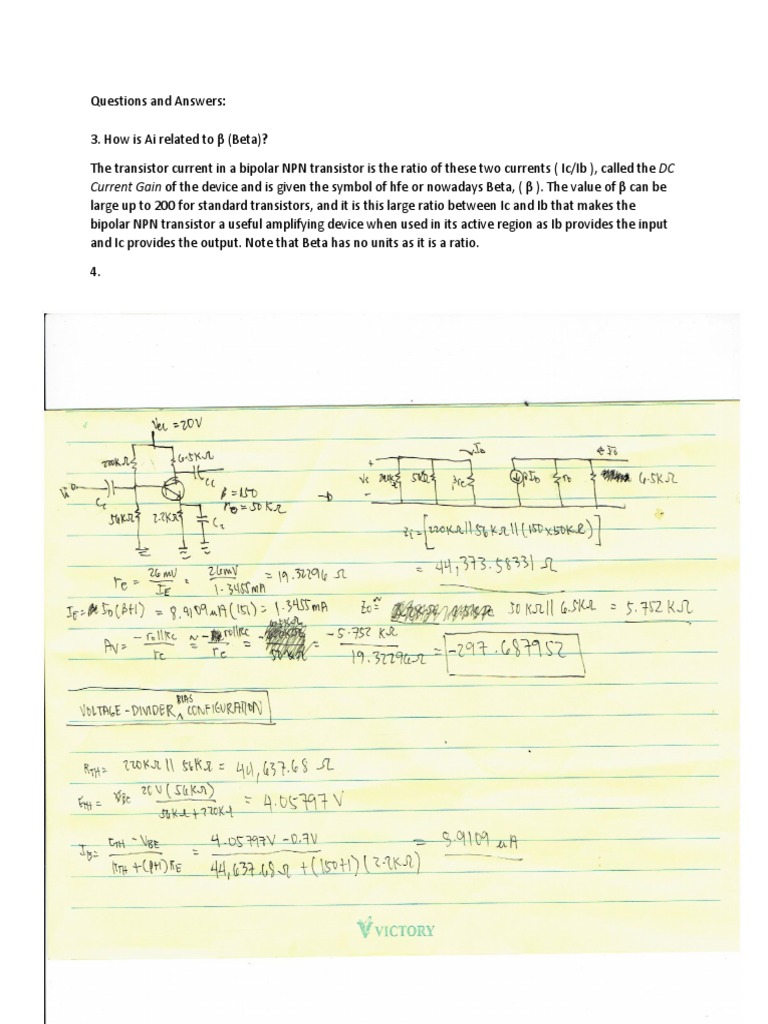 Questions and Answers:
3. How is Ai related to β (Beta)?
The transistor current in a bipolar NPN transistor is the ratio of these two currents ( Ic/Ib ), called the DC
Current Gain of the device and is given the symbol of hfe or nowadays Beta, ( β ). The value of β can be
large up to 200 for standard transistors, and it is this large ratio between Ic and Ib that makes the
bipolar NPN transistor a useful amplifying device when used in its active region as Ib provides the input
and Ic provides the output. Note that Beta has no units as it is a ratio.
4.
Vcc = 20V
6.5KΩ
β = 150
ro = 50KΩ
56KΩ 2.2KΩ C2
Ib
βIb ro 6.5KΩ
Io
Zi = [220KΩ||56KΩ||(150x50KΩ)]
= 44,373.58331 Ω
re = 26mV / IE = 26mV / 1.3455mA = 19.32296 Ω
IE = Ib(β+1) = 8.9109μA(151) = 1.3455mA
Zo = 50KΩ||6.5KΩ = 5.752KΩ
AV = -ro||Rc / re ≈ -ro||Rc / re = = -5.752 KΩ / 19.32296Ω = -297.687952
VOLTAGE-DIVIDER BIAS CONFIGURATION
RTH = 220KΩ||56KΩ = 44,637.68 Ω
ETH = 20V(56KΩ) / 56KΩ+220KΩ = 4.05797V
IB = ETH - VBE / RTH+(β+1)RE = 4.05797V-0.7V / 44,637.68Ω+(150+1)(2.2KΩ) = 8.9109 μA
VICTORY